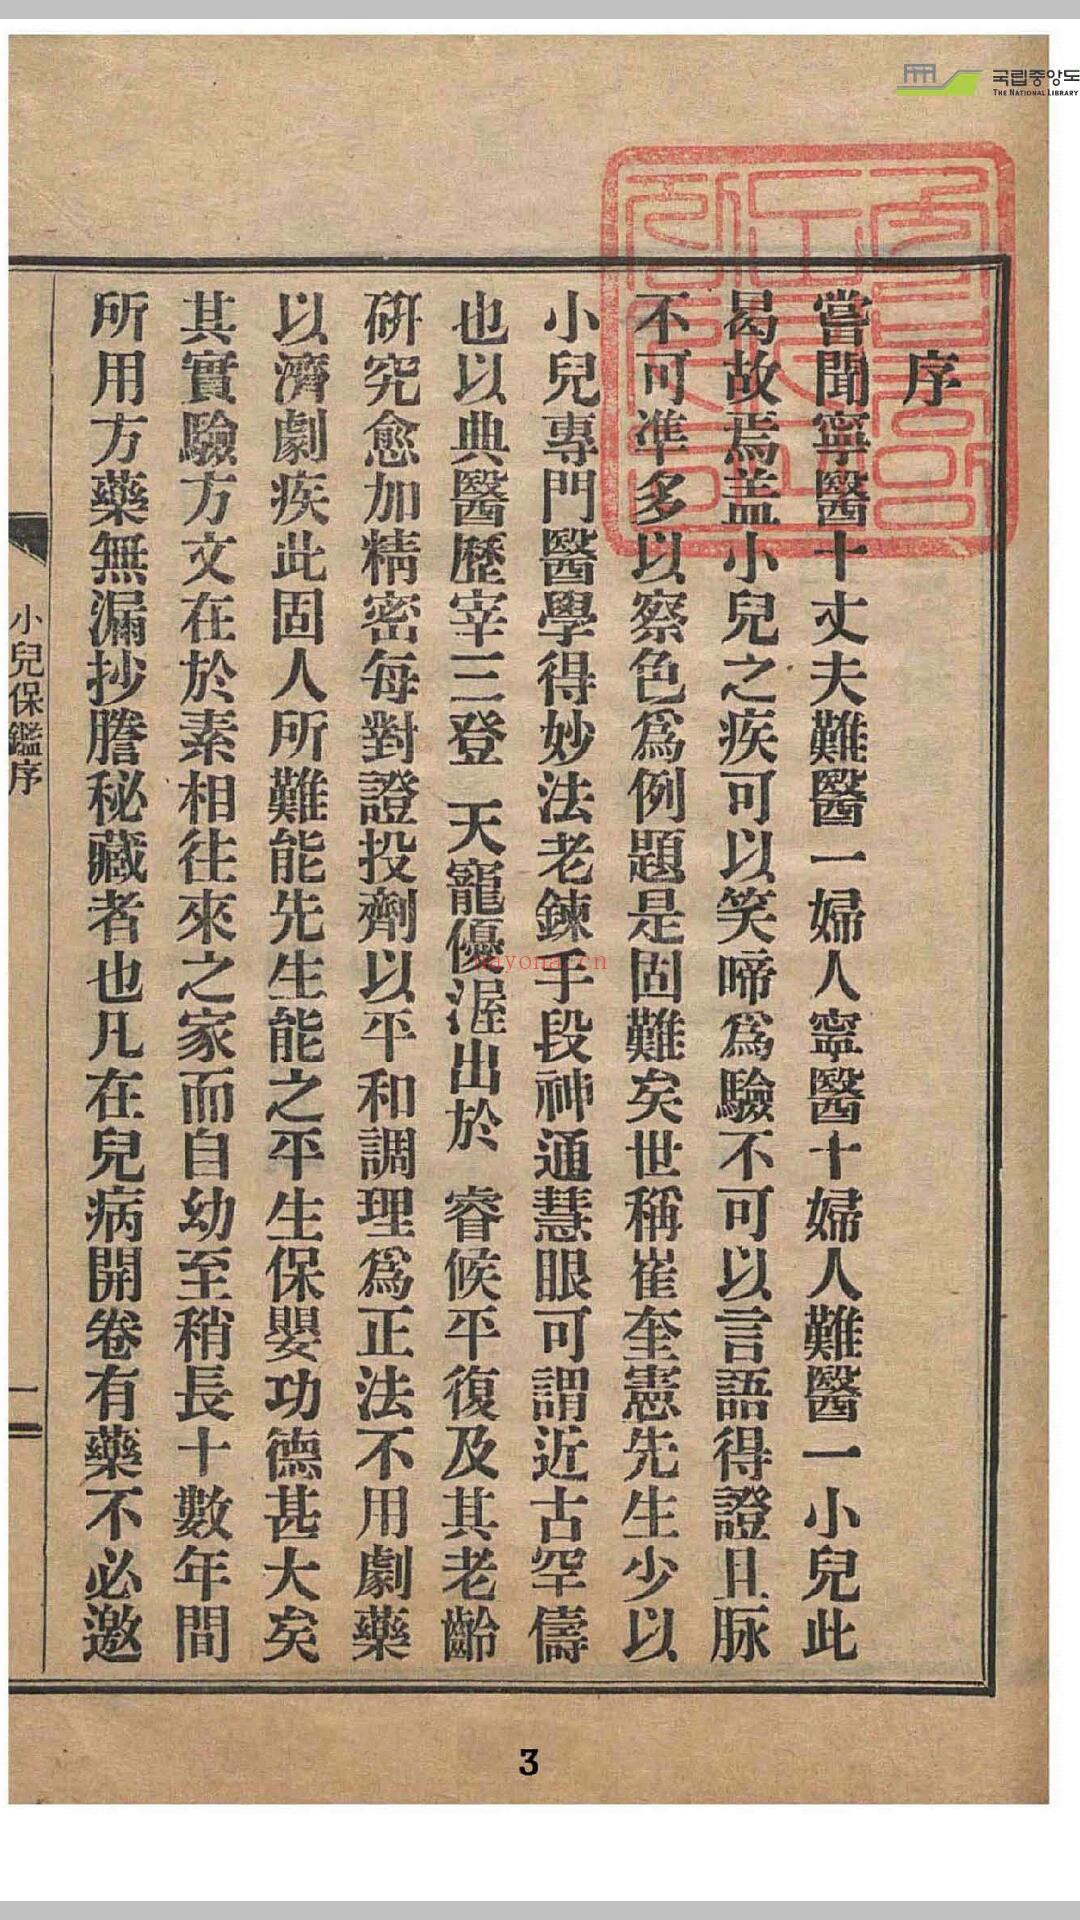 국립중앙도
THE NATIONAL LIBRARY
序
嘗聞寧醫十丈夫難醫一婦人寧醫十婦人難醫一小兒此
曷故焉盖小兒之疾可以笑啼爲驗不可以言語得證且脈
不可準多以察色爲例題是固難矣世稱崔奎憲先生少以
小兒專門醫學得妙法老鍊手段神通慧眼可謂近古罕儔
也以典醫歷宰三登 天寵優渥出於 睿候平復及其老齡
硏究愈加精密每對證投劑以平和調理爲正法不用劇藥
以濟劇疾此固人所難能先生能之平生保嬰功德甚大矣
其實驗方文在於素相往來之家而自幼至稍長十數年間
所用方藥無漏抄謄秘藏者也凡在兒病開卷有藥不必邀
小兒保鑑序
一
3
nayona.cn